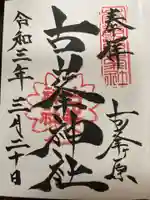 奉拝
古峯ヶ原
古峯神社
令和三年
三月二十日